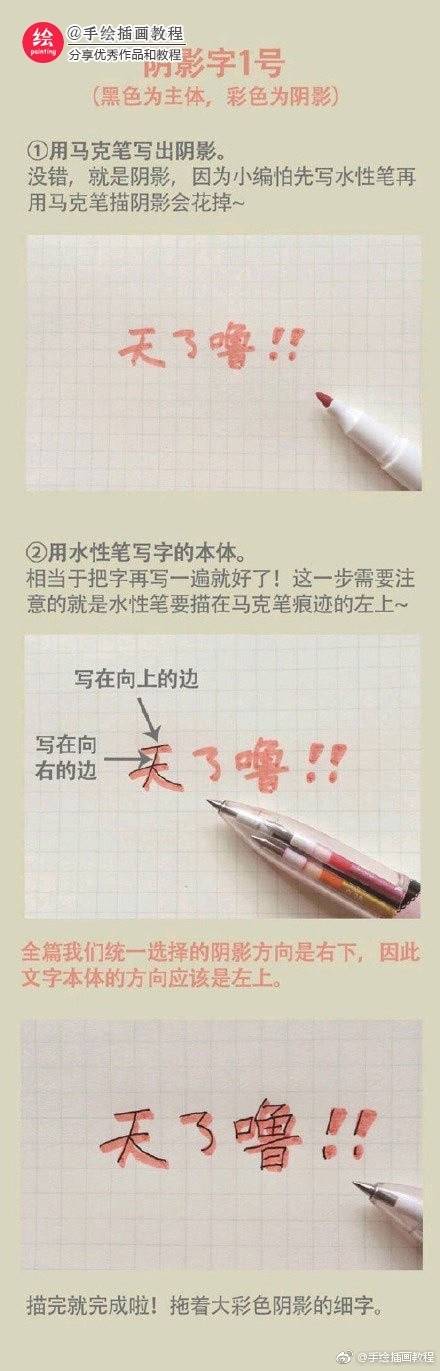 绘
painting
@手绘插画教程
分享优秀作品和教程
阴影字1号
（黑色为主体，彩色为阴影）
①用马克笔写出阴影。
没错，就是阴影，因为小编怕先写水性笔再
用马克笔描阴影会花掉~
天了噜!!
②用水性笔写字的本体。
相当于把字再写一遍就好了！这一步需要注
意的就是水性笔要描在马克笔痕迹的左上~
写在向上的边
写在向
右的边
天了噜!!
全篇我们统一选择的阴影方向是右下，因此
文字本体的方向应该是左上。
天了噜!!
描完就完成啦！拖着大彩色阴影的细字。
@手绘插画教程